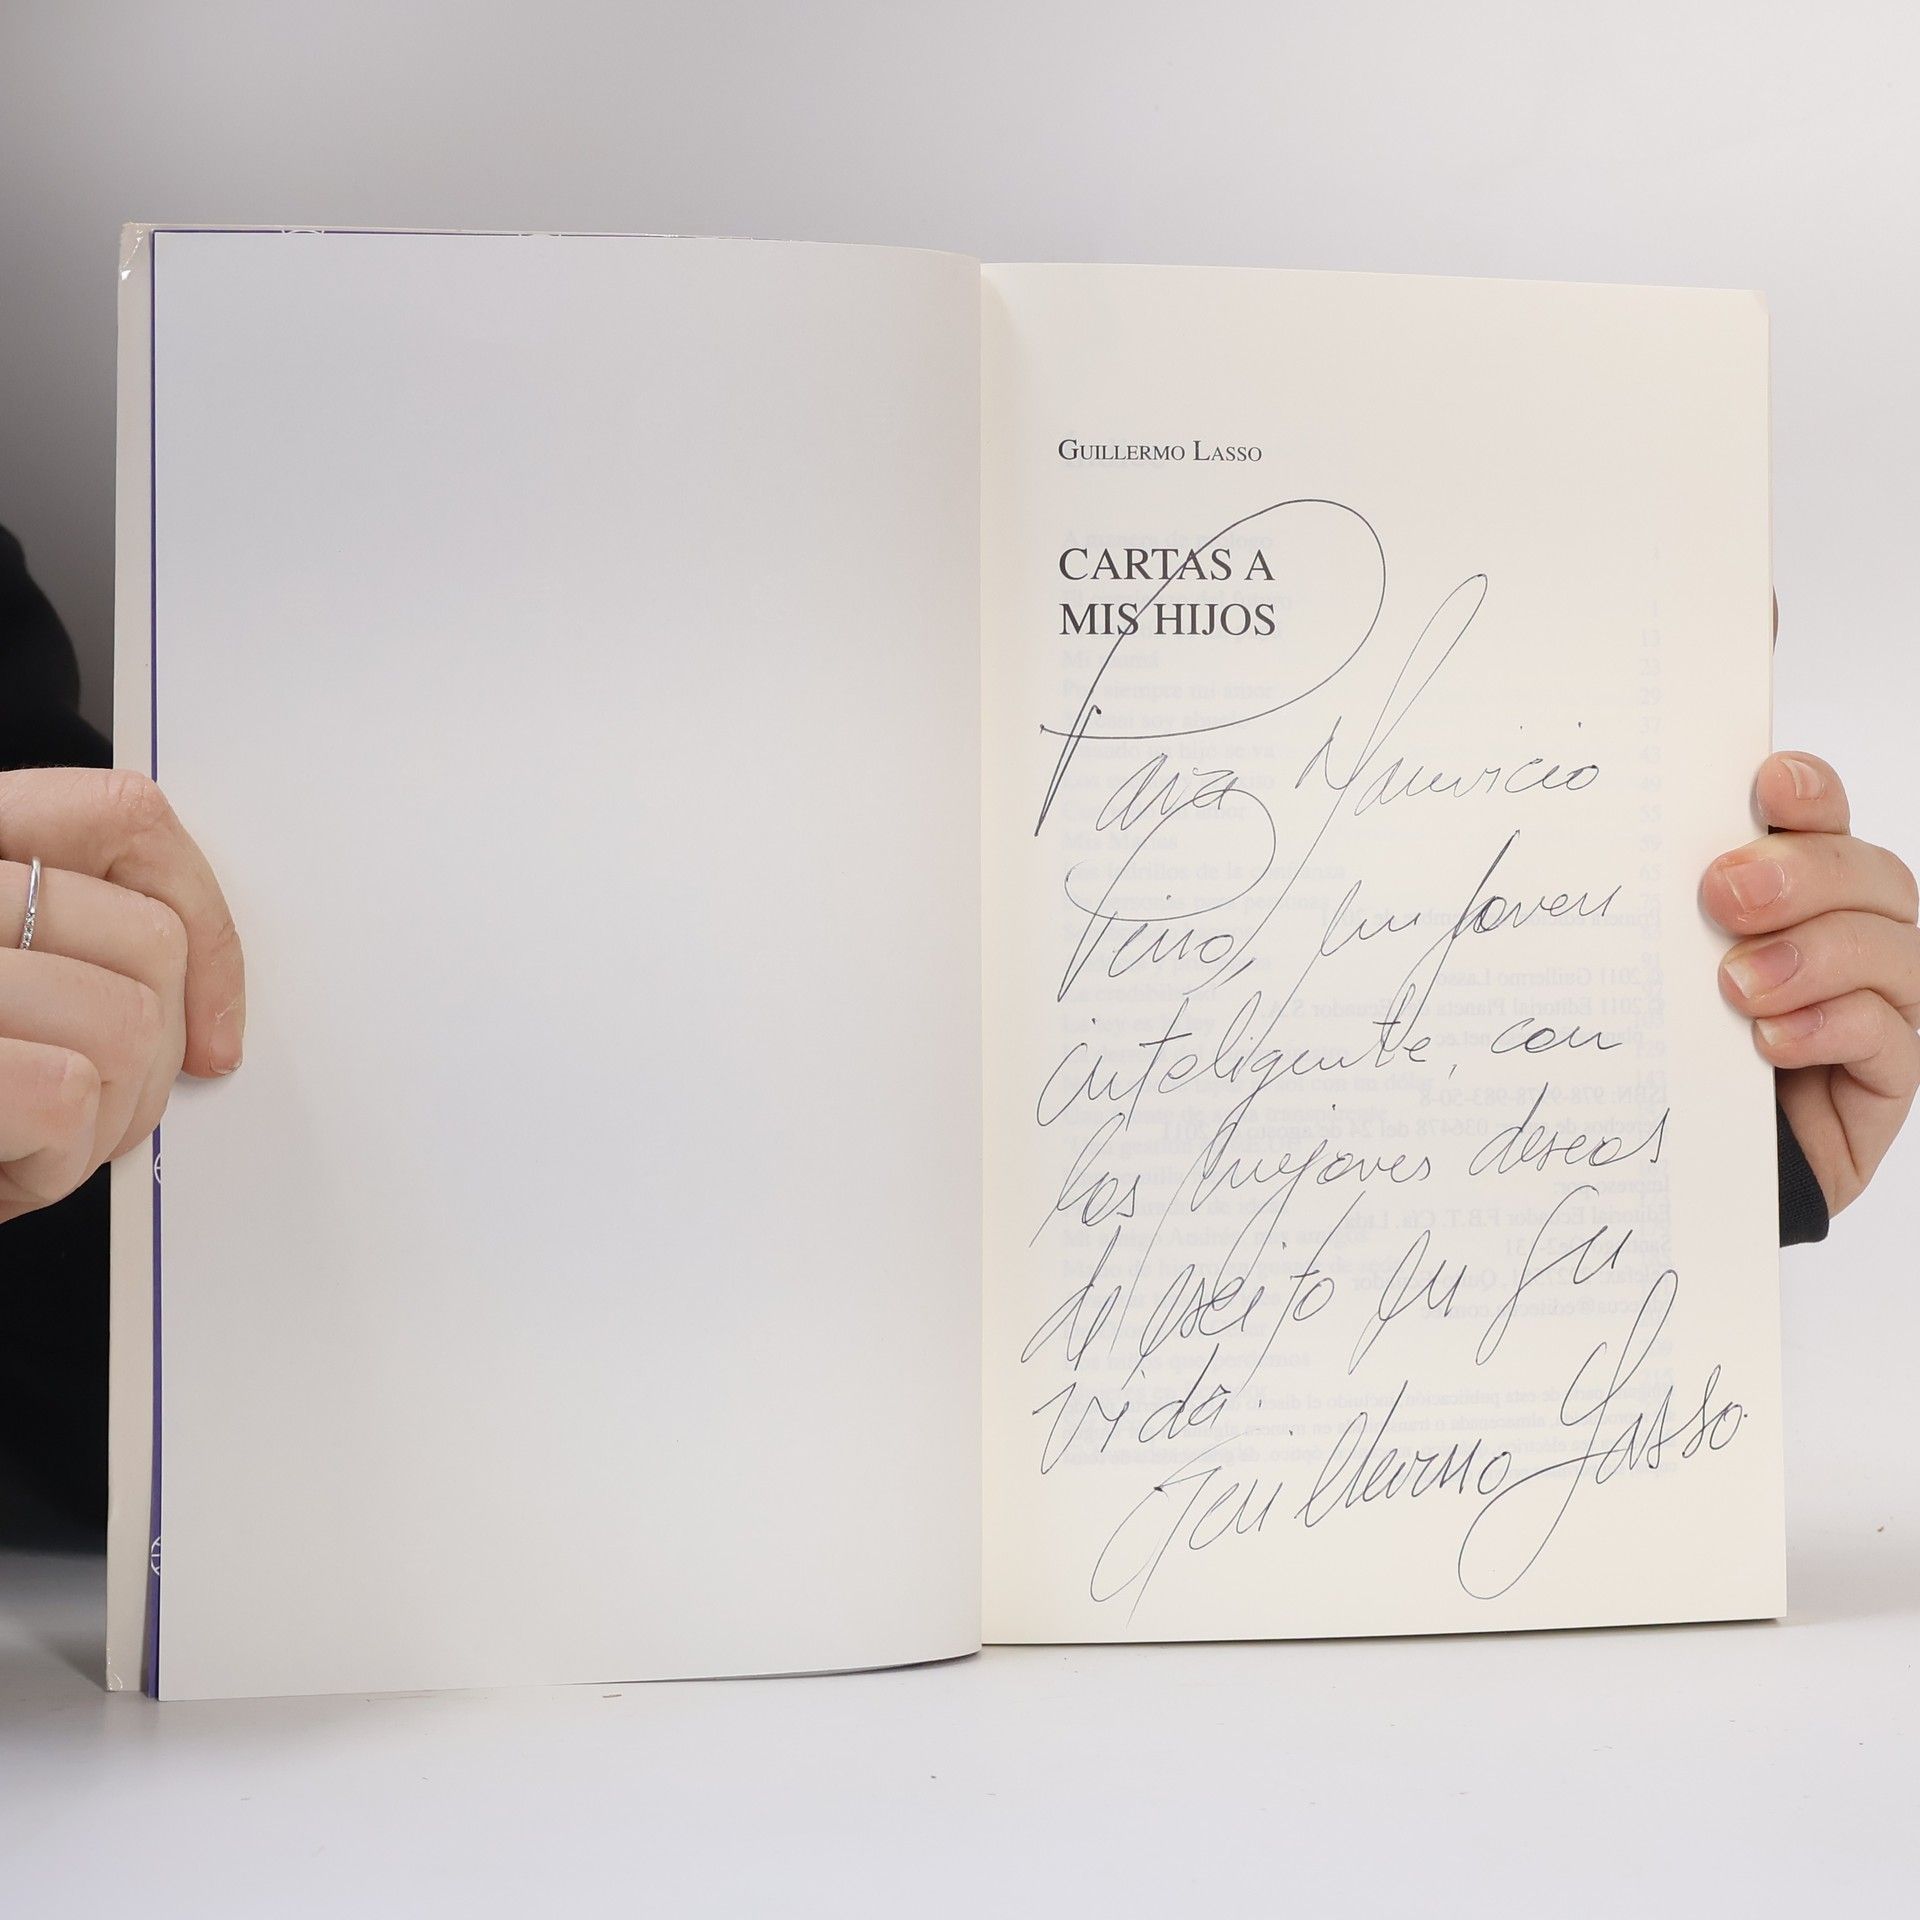 GUILLERMO LASSO
CARTAS A
MIS HIJOS
Para Mauricio
Pino, un joven
inteligente, con
los mejores deseos
de exito en su
vida.
Guillermo Lasso.